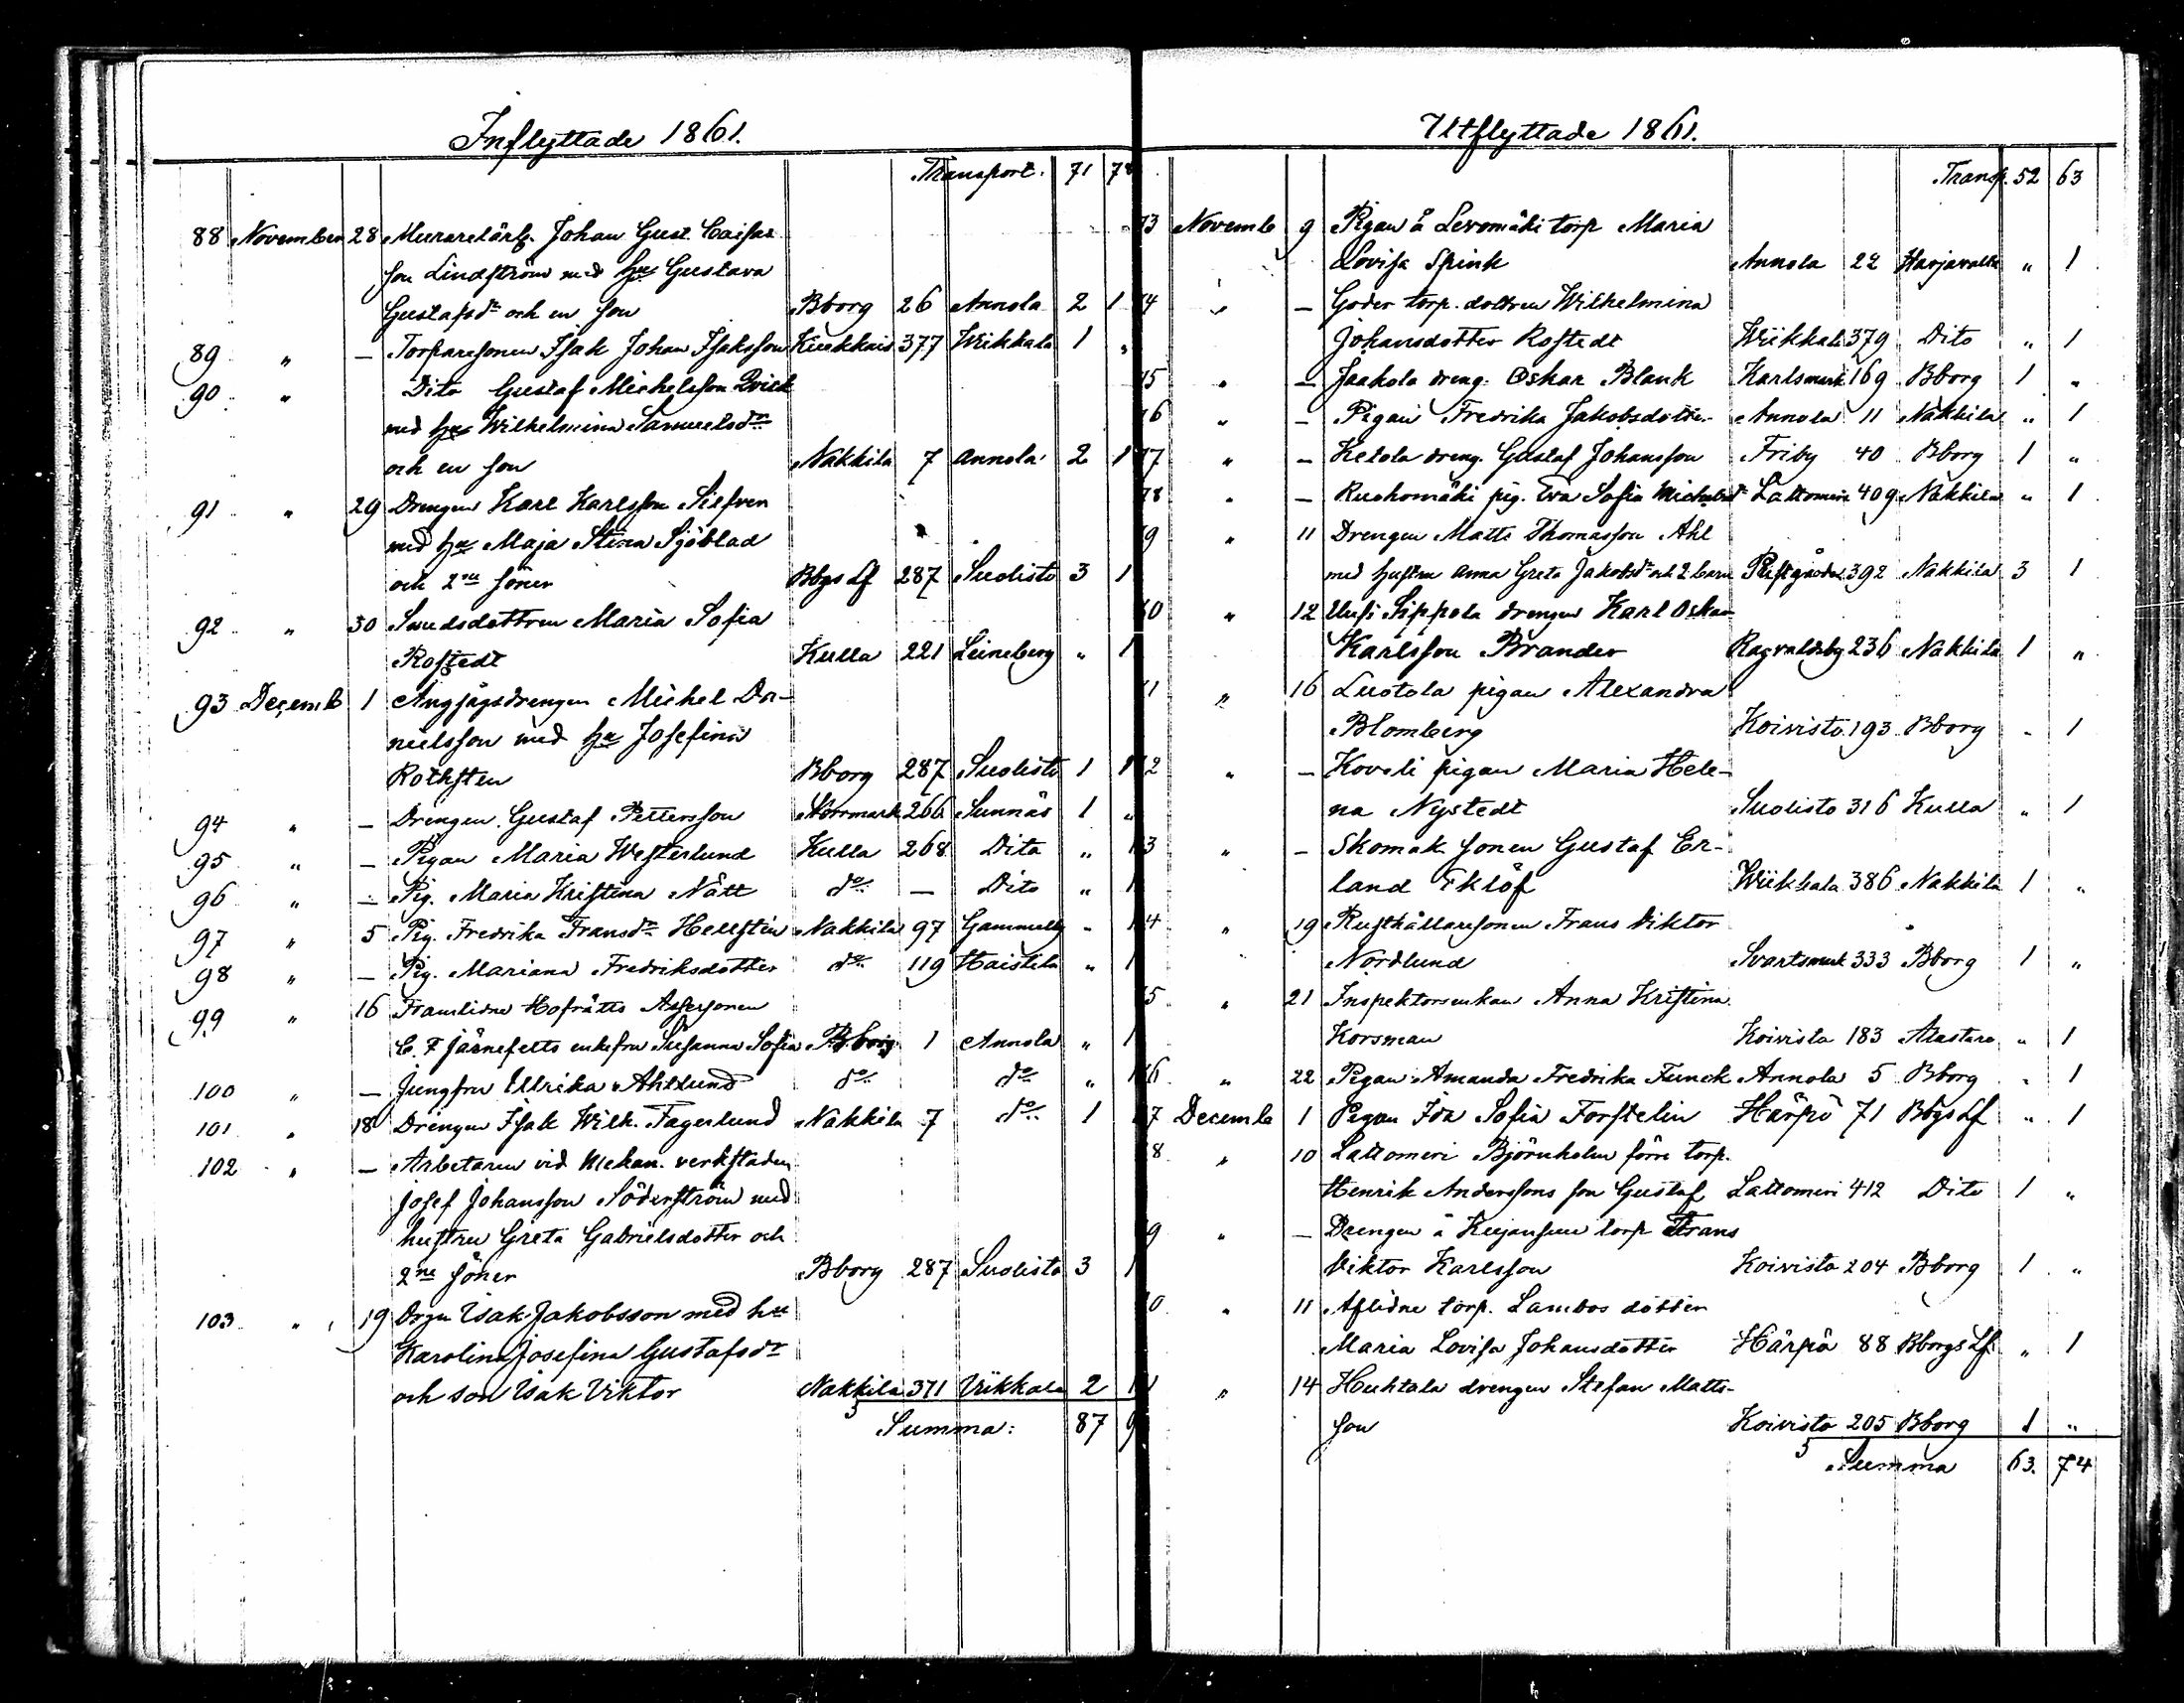 Inflyttade 1861.
Transport. 71 78
88 November 28 Murarelärl. Johan Gust. Caisas
son Lindström med hu Gustava
Gustafsdr och en son Bborg 26 Annola 2 1
89 " — Torparesonen Isak Johan Isaksson Kiukkais 377 Wiikkala 1 "
90 " Dito Gustaf Michelsson Qvick
med hu Wilhelmina Samuelsdr
och en son Nakkila 7 Annola 2 1
91 " 29 Drengen Karl Karlsson Silfven
med hu Maja Stina Sjöblad
och 2ne söner Bbgs Lf 287 Suolisto 3 1
92 " 30 Smedsdottren Maria Sofia
Rostedt Kulla 221 Leineberg " 1
93 Decemb 1 Ångsågsdrengen Michel Da-
nielsson med hu Josefina
Rothsten Bborg 287 Suolisto 1 1
94 " — Drengen Gustaf Pettersson Norrmark 266 Sunnäs 1 "
95 " — Pigan Maria Westerlund Kulla 268 Dito "
96 " — Pig. Maria Kristina Nått do — Dito " 1
97 " 5 Pig. Fredrika Fransdr Hellsten Nakkila 97 Gammelby "
98 " — Pig. Mariana Fredriksdotter do 119 Haistila " 1
99 " 16 Framlidne Hofrätts Assesoren
C. F Järnefelts enkefru Susanna Sofia Bborg 1 Annola " 1
100 " — Jungfru Ulrika Ahllund do do "
101 " 18 Drengen Isak Wilh. Fagerlund Nakkila 7 do 1
102 " — Arbetaren vid Mekan. verkstaden
Josef Johansson Söderström med
hustru Greta Gabrielsdotter och
2ne söner Bborg 287 Suolisto 3 1
103 " 19 Drgn Isak Jakobsson med hu
Karolina Josefina Gustafsdr
och son Isak Viktor Nakkila 371 Viikkala 2 1
Summa: 87 9
Utflyttade 1861.
Transp. 52 63
3 Novemb 9 Pigan å Levomäki torp Maria
Lovisa Spink Annola 22 Harjavalta " 1
4 " — Goder torp. dottren Wilhelmina
Johansdotter Rostedt Wiikkala 379 Dito " 1
5 " — Jaakola dreng. Oskar Blank Karlsmark 169 Bborg 1 "
6 " — Pigan Fredrika Jakobsdotter Annola 11 Nakkila " 1
7 " — Ketola dreng. Gustaf Johansson Friby 40 Bborg 1 "
8 " — Ruohomäki pig. Eva Sofia Michelsdr Lattomeri 409 Nakkila " 1
9 " 11 Drengen Matts Thomasson Ahl
med hustru Anna Greta Jakobsdr och 2 barn 392 Nakkila 3 1
0 " 12 Uusi Sippola drengen Karl Oskar
Karlsson Brander Ragvaldsby 236 Nakkila 1 "
1 " 16 Luotola pigan Alexandra
Blomberg Koivisto 193 Bborg " 1
2 " — Koveli pigan Maria Hele-
na Nystedt Suolisto 316 Kulla " 1
3 " — Skomak sonen Gustaf Er-
land Eklöf Wiikkala 386 Nakkila 1 "
4 " 19 Rusthållaresonen Frans Viktor
Nordlund Svartsmark 333 Bborg 1 "
5 " 21 Inspektorsenkan Anna Kristina
Korsman Koivisto 183 Alastaro " 1
6 " 22 Pigan Amanda Fredrika Funck Annola 5 Bborg " 1
7 Decemb 1 Pigan Ida Sofia Forstelin Härpö 71 Bbgs Lf " 1
8 " 10 Lattomeri Björnholm förre torp.
Henrik Anderssons son Gustaf Lattomeri 412 Dito 1 "
9 " — Drengen å Kujansuu torp Frans
Viktor Karlsson Koivisto 204 Bborg 1 "
0 " 11 Aflidne torp. Lambos dotter
Maria Lovisa Johansdotter Härpö 88 Bborgs Lf " 1
1 " 14 Huhtala drengen Stefan Matts-
son Koivisto 205 Bborg 1 "
Summa 63. 74